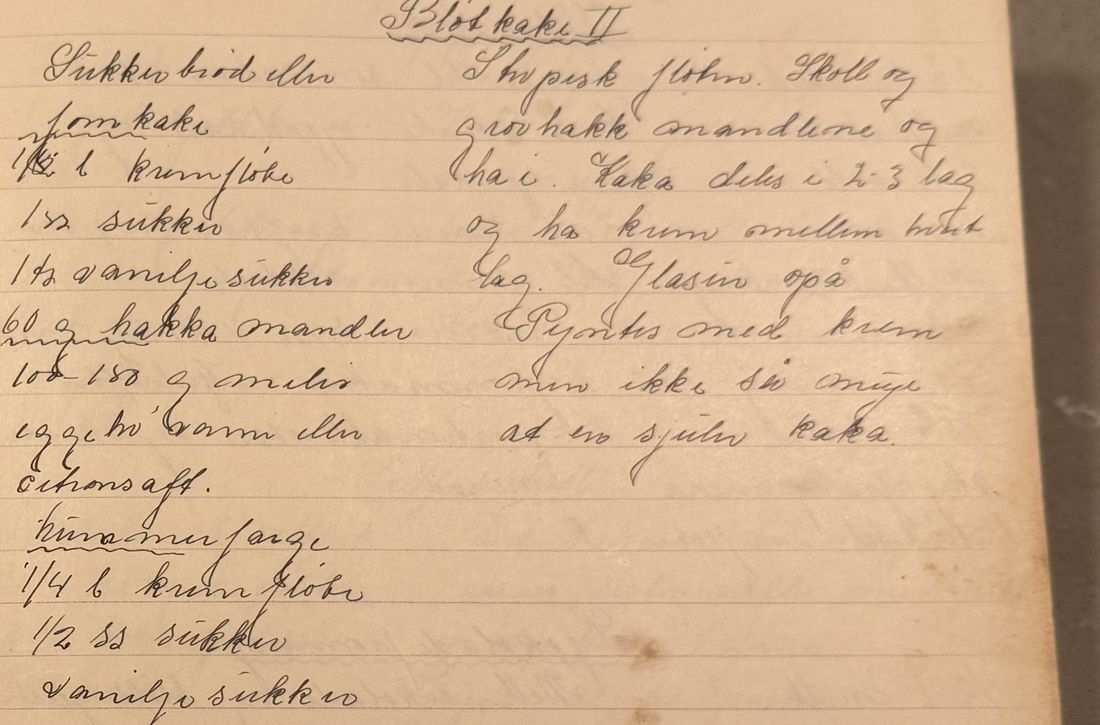 Bløtkake II
Sukkerbrød eller
formkake
1/2 l kremfløte
1 ss sukker
1 ts vaniljesukker
60 g hakka mandler
100-150 g melis
eggehv vann eller
citronsaft.
farge
1/4 l kremfløte
1/2 ss sukker
vaniljesukker
Stivpisk fløten. Skoll og
grovhakk mandlene og
ha i. Kaka deles i 2-3 lag
og ha krem mellem hvert
lag. Glasur opå
Pyntes med krem
men ikke så mye
at en sjuler kaka.